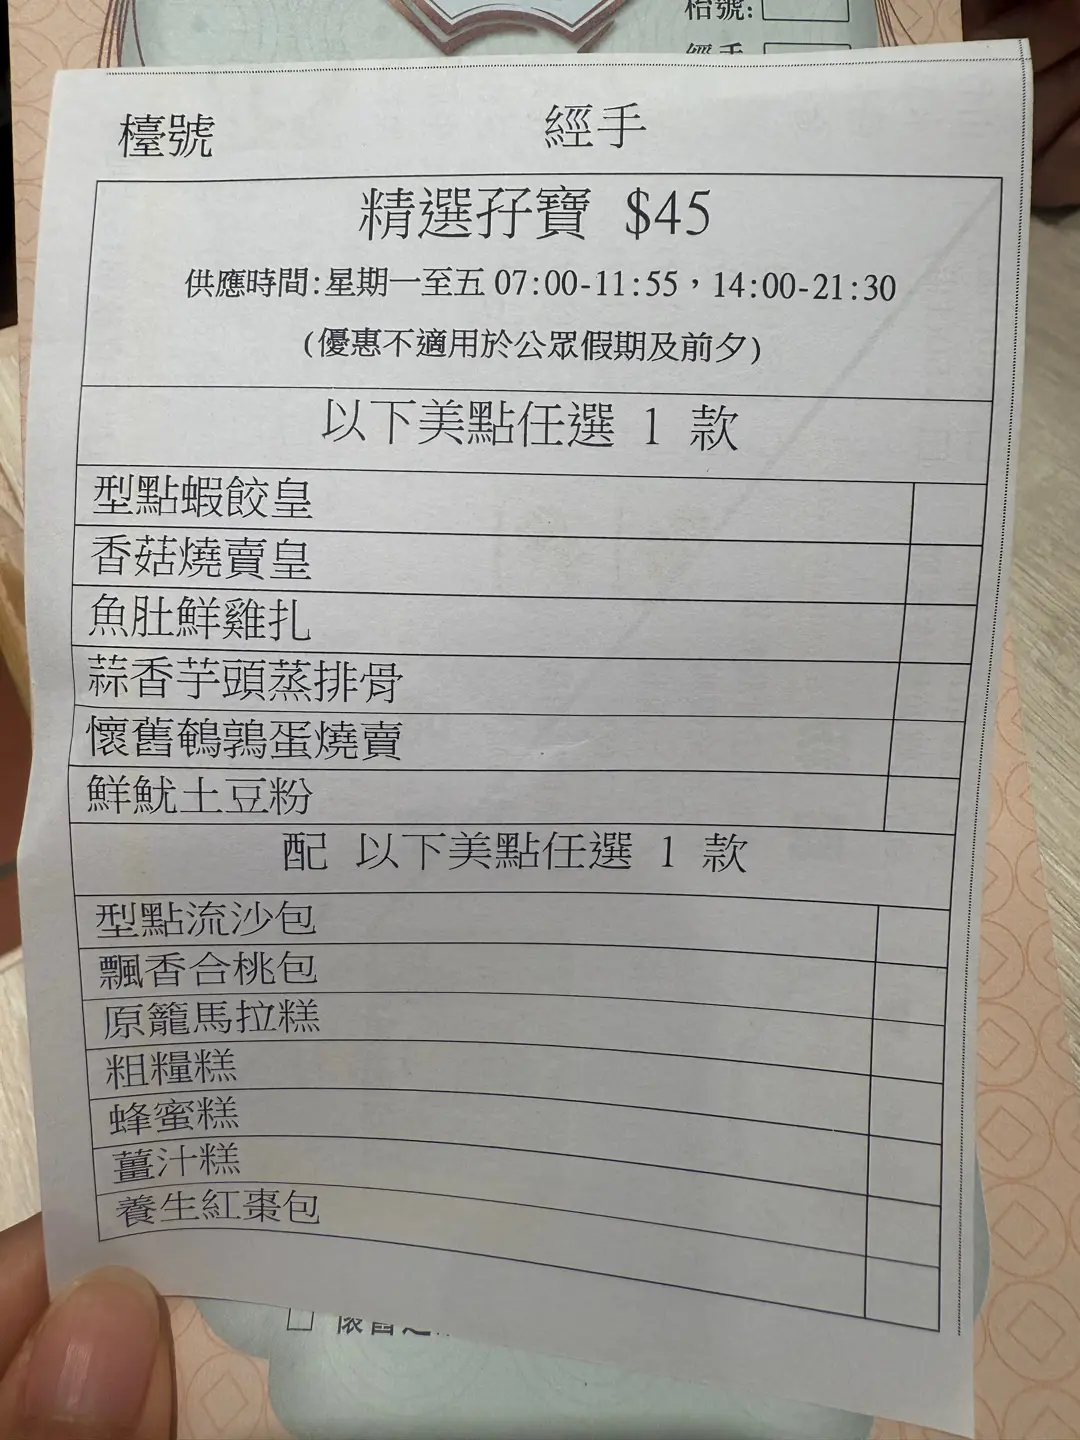 枱號:
經手
檯號 經手
精選孖寶 $45
供應時間:星期一至五 07:00-11:55，14:00-21:30
(優惠不適用於公眾假期及前夕)
以下美點任選 1 款
型點蝦餃皇
香菇燒賣皇
魚肚鮮雞扎
蒜香芋頭蒸排骨
懷舊鵪鶉蛋燒賣
鮮魷土豆粉
配 以下美點任選 1 款
型點流沙包
飄香合桃包
原籠馬拉糕
粗糧糕
蜂蜜糕
薑汁糕
養生紅棗包
懷舊